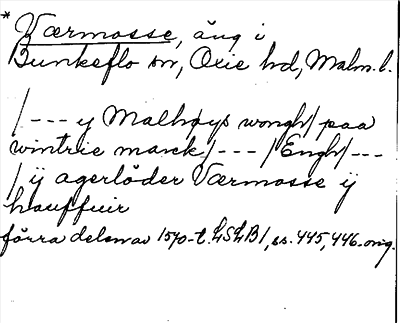 * Værmosse, äng i
Bunkeflo sn, Oxie hd, Malm. l.
/--- y Malhøys wongh/ paa
wintrie marck/--- /Engh/---
/ ij agerløder Værmosse ij
hauffuir
förra delen av 1570-t. LSLB1, ss. 445, 446. orig.